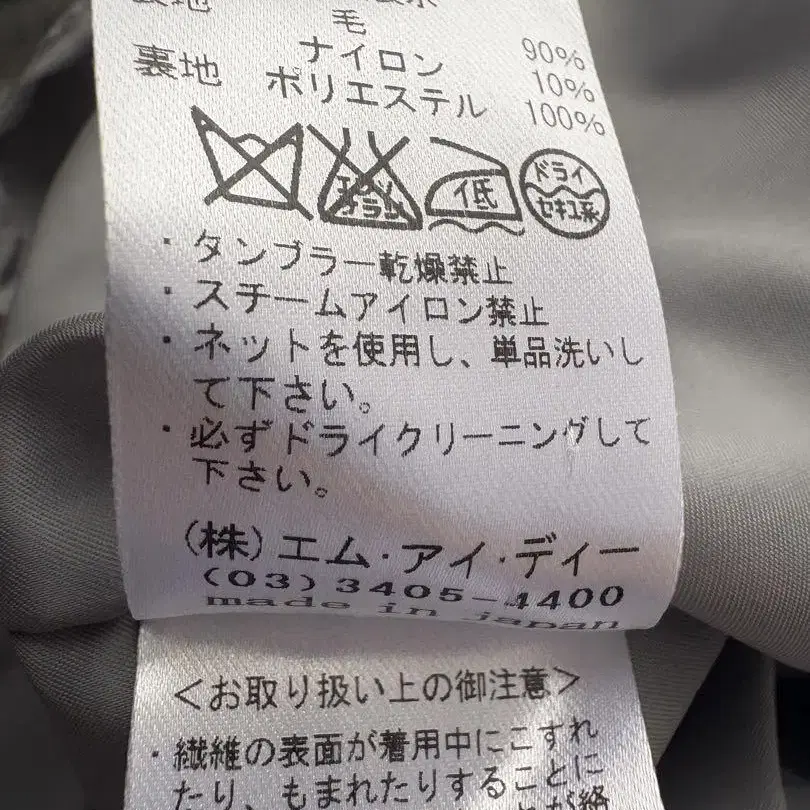 毛 90%
ナイロン 10%
裏地 ポリエステル 100%
エンソ
サラシ
低
ドライ
セキユ系
・タンブラー乾燥禁止
・スチームアイロン禁止
・ネットを使用し、単品洗いし
て下さい。
・必ずドライクリーニングして
下さい。
(株)エム・アイ・ディー
(03)3405-4400
made in japan
<お取り扱い上の御注意>
・繊維の表面が着用中にこすれ
たり、もまれたりすることに